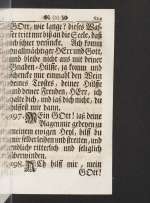 GOtt, wie lange? dieses Was-
ser tritt mir biß an die Seele, daß
ich schier versincke. Ach komm
du allmächtiger HErr und Gott,
und bleibe nicht aus mit deiner
Gnaden-Hülffe, ja komm und
schencke mir einmahl den Wein
deines Trostes, deiner Hülffe
und deiner Freuden, HErr, ich
halte dich, und laß dich nicht, du
hilffest mir dann.
197. MEin GOtt! laß deine
Augen mir geben zu
meinem ewigen Heyl, hilff du
mir selber leiden und streiten, und
endlich ritterlich und seliglich
überwinden.
198. ACh hilff mir, mein
GOtt!